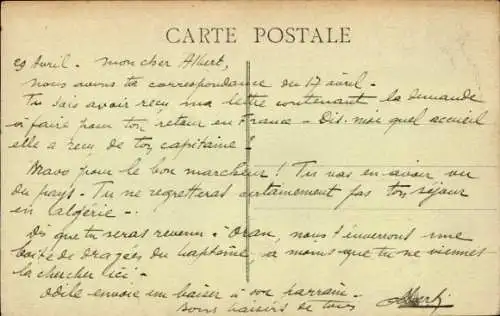 CARTE POSTALE
29 Avril - mon cher Albert,
nous avons ta correspondance du 17 avril -
Tu dois avoir reçu ma lettre contenant la demande
à faire pour ton retour en France - Dis-moi quel accueil
elle a reçu de ton capitaine ?
Bravo pour le bon marcheur ! Tu vas en avoir vu
du pays - Tu ne regretteras certainement pas ton séjour
en Algérie -
Dès que tu seras revenu à Oran, nous t'enverrons une
boîte de dragées du baptême, à moins que tu ne viennes
la chercher ici -
Odile envoie un baiser à son parrain -
Bons baisers de tous